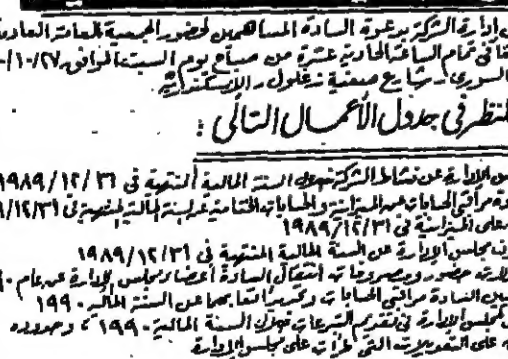 إدارة الشركة بدعوة السادة المساهمين لحضور الجمعية العامة العادية
في تمام الساعة الحادية عشرة من صباح يوم السبت الموافق ١٠/٢٧/
السورى، شارع صفية زغلول، الإسكندرية
للنظر فى جدول الأعمال التالى :
الإدارة عن نشاط الشركة خلال السنة المالية المنتهية فى ١٩٨٩/١٢/٣١
مراقبى الحسابات عن الميزانية والحسابات الختامية للسنة المالية المنتهية فى ١٢/٣١/
على الميزانية فى ١٩٨٩/١٢/٣١
مجلس الإدارة عن السنة المالية المنتهية فى ١٩٨٩/١٢/٣١
حضور ومصروفات انتقال السادة أعضاء مجلس الإدارة عن عام
السادة مراقبى الحسابات وتحديد أتعابهما عن السنة المالية ١٩٩٠
لمجلس الإدارة فى تقديم التبرعات خلال السنة المالية ١٩٩٠ وحدوده
على التعديلات التى طرأت على مجلس الإدارة